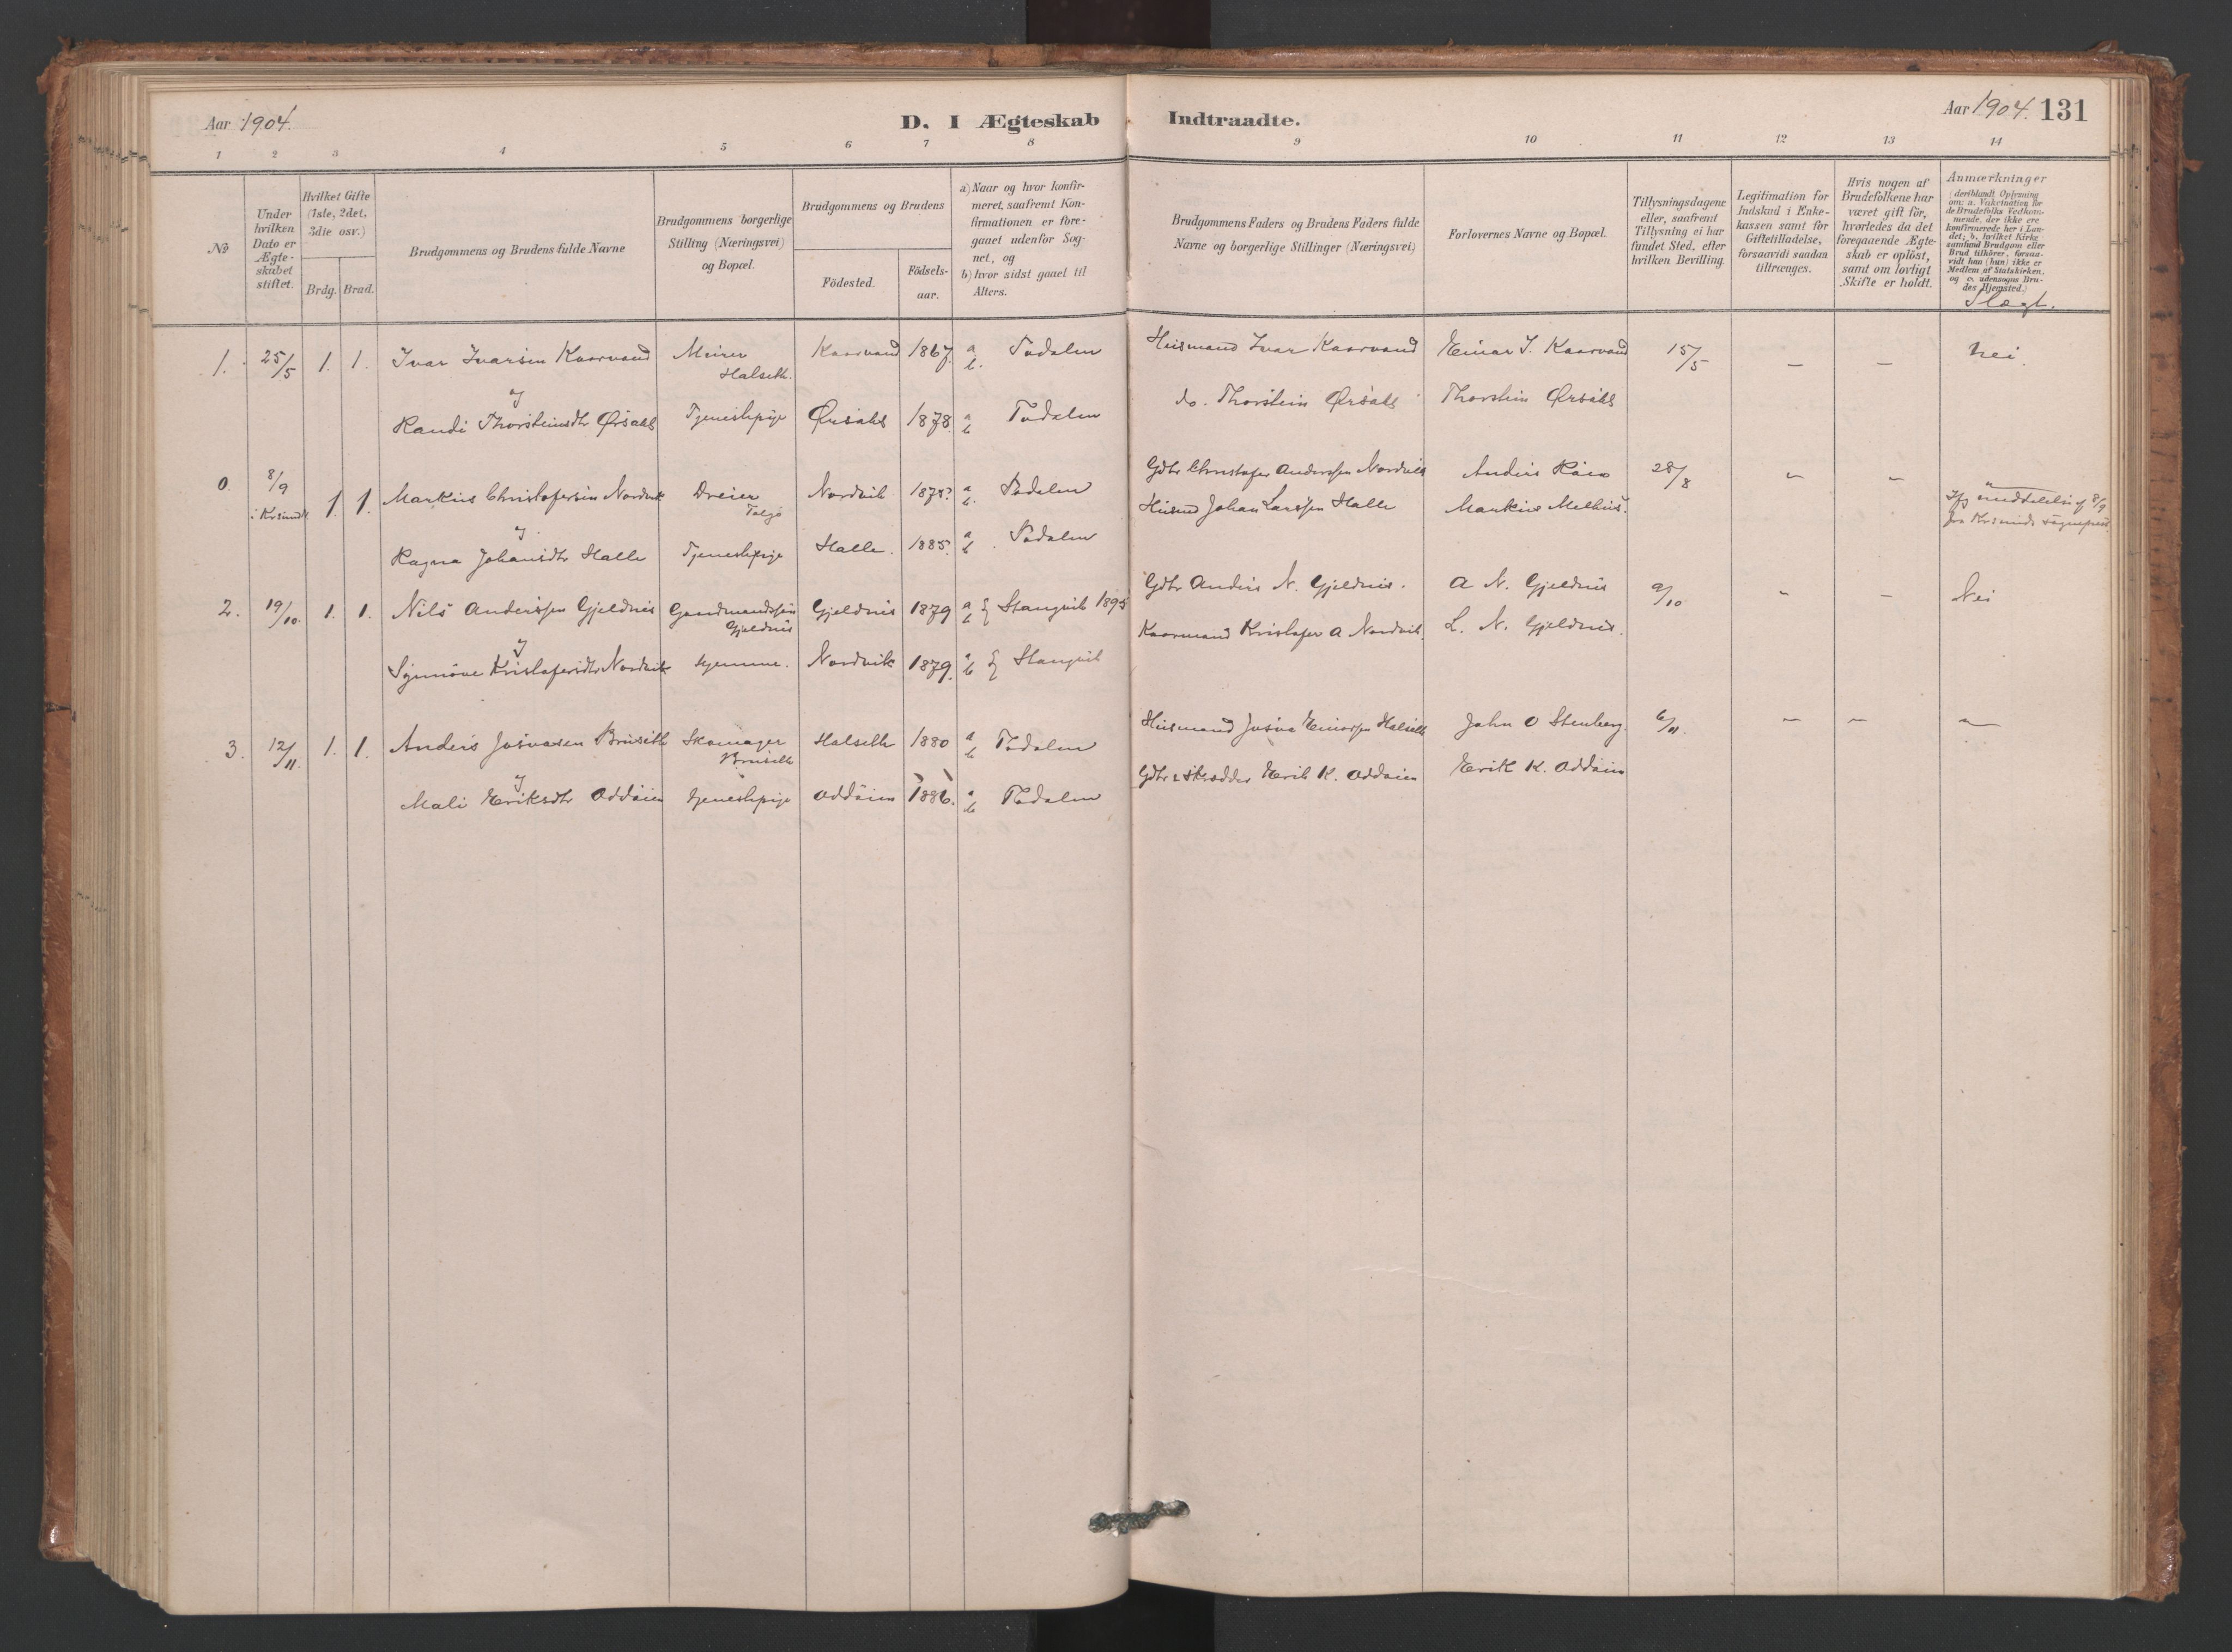 Aar 1904.
D. I Ægteskab Indtraadte.
Aar 1904. 131
1 2 3 4 5 6 7 8 9 10 11 12 13 14
No
Under hvilken Dato er Ægteskabet stiftet.
Hvilket Gifte (1ste, 2det, 3die osv.)
Brdg. Brud.
Brudgommens og Brudens fulde Navne
Brudgommens borgerlige Stilling (Næringsvei) og Bopæl.
Brudgommens og Brudens
Födested.
Födselsaar.
a) Naar og hvor konfirmeret, saafremt Konfirmationen er foregaaet udenfor Sognet, og
b) hvor sidst gaaet til Alters.
Brudgommens Faders og Brudens Faders fulde Navne og borgerlige Stillinger (Næringsvei)
Forlovernes Navne og Bopæl.
Tillysningsdagene eller, saafremt Tillysning ei har fundet Sted, efter hvilken Bevilling.
Legitimation for Indskud i Enkekassen samt for Giftetilladelse, forsaavidt saadan tiltrænges.
Hvis nogen af Brudefolkene har været gift för, hvorledes da det foregaaende Ægteskab er oplöst, samt om lovligt Skifte er holdt.
Anmærkninger
(deriblandt Oplysning om: a. Vakcination for de Brudefolks Vedkommende, der ikke ere konfirmerede her i Landet; b. hvilket Kirkesamfund Brudgom eller Brud tilhörer, forsaavidt han (hun) ikke er Medlem af Statskirken, og c. udensogns Brudes Hjemsted.)
Slægt.
1. 25/5 1. 1. Ivar Ivarsen Kaarvand Meirer Halseth. Kaarvand 1867. a b. Todalen Husmand Ivar Kaarvand Einar I. Kaarvand 15/5 — — Nei.
Randi Thorsteinsdtr Ørsahl Tjenestepige Ørsahl 1878. a b Todalen do. Thorstein Ørsahl Thorstein Ørsahl
0. 8/9 i Krsund. 1. 1. Markus Christofersen Nordvik Dreier Talgö Nordvik 1878? a b. Todalen Gdbr Christofer Anderssen Nordvik Anders 28/8 " "
Ragna Johansdtr Halle Tjenestepige Halle. 1885. a b Todalen Husmd Johan Larssen Halle Markus Melhus.
meddelelse af 8/9
fra Krsunds sognepræst
2. 19/10. 1. 1. Nils Anderssen Gjeldnes Gaardmandssön Gjeldnes Gjeldnes 1879 a b } Stangvik 1895 Gdbr Anders N. Gjeldnes. A N. Gjeldnes 9/10 " — Nei
Synnöve Kristofersdtr Nordvik hjemme. Nordvik 1879. a b } Stangvik Kaarmand Kristofer A Nordvik. L. N. Gjeldnes.
3. 12/11. 1. 1. Anders Josvasen Bruseth Skomager Bruseth Halseth 1880 a b Todalen Husmand Josva Einarsen Halseth John O Stenberg. 6/11. — — —
Mali Eriksdtr Oddöien Tjenestepige Oddöien 1886. a b Todalen Gdbr & Skrædder Erik K. Oddöien Erik K. Oddöien